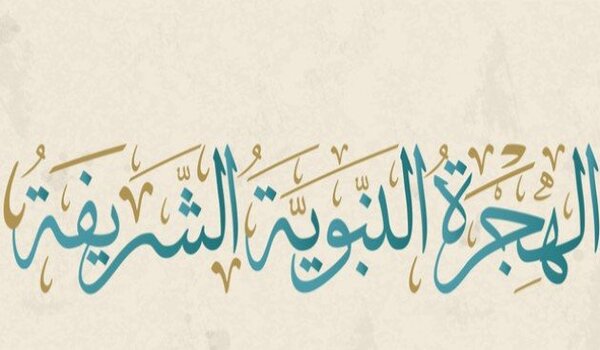 الهِجْرَةُ النَّبَوِيَّةُ الشَّرِيفَةُ